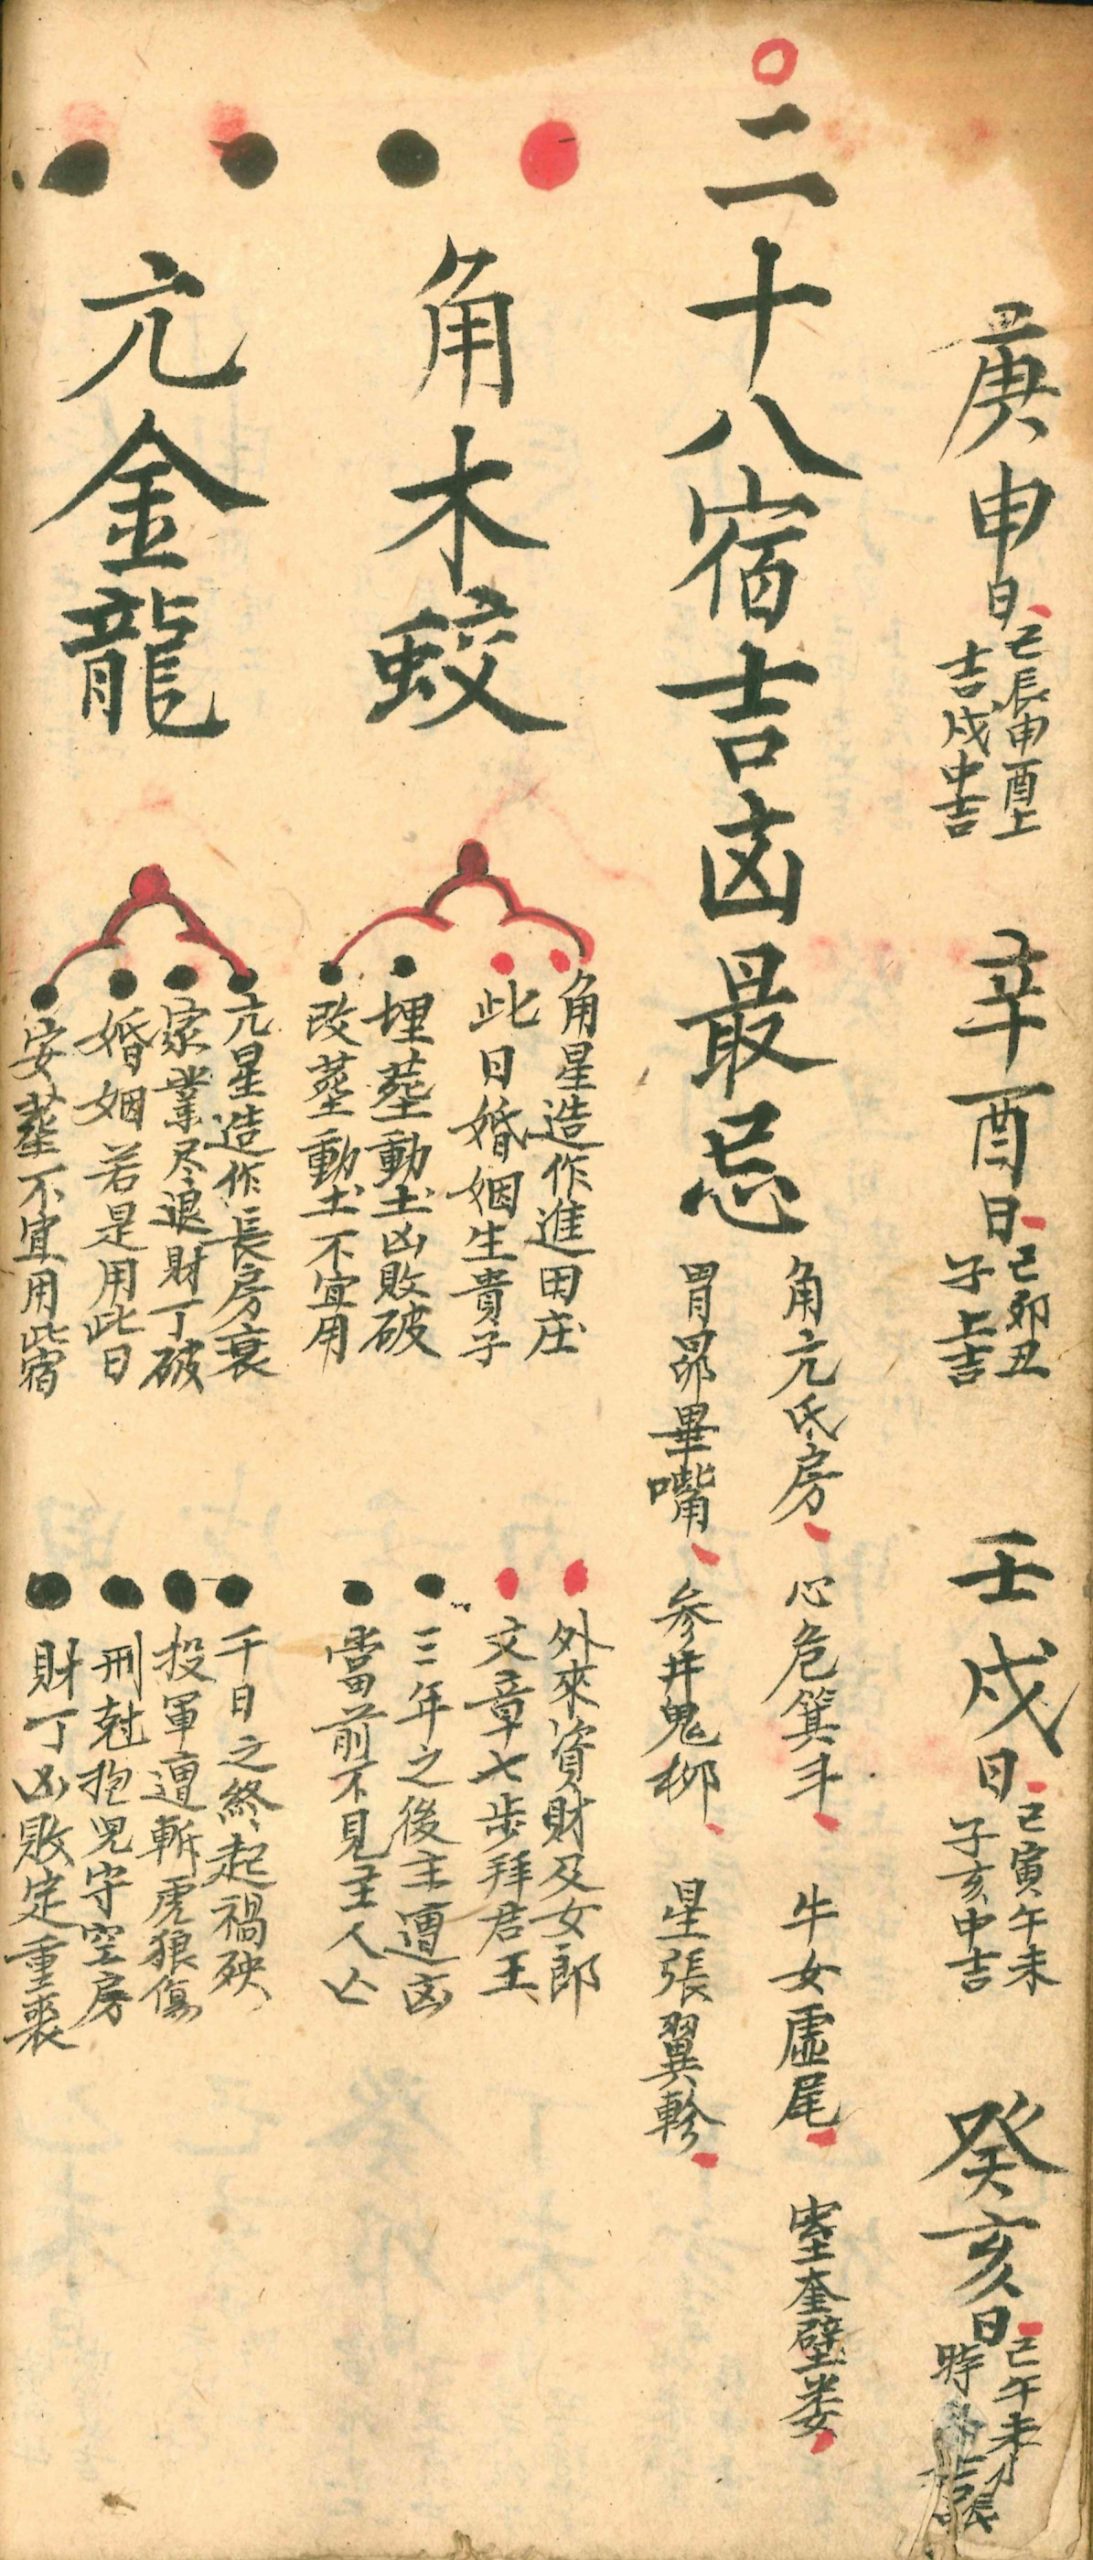 庚申日 巳辰申酉上
吉戌中吉
辛酉日 巳卯丑
子上吉
壬戌日 巳寅午未
子亥中吉
癸亥日 巳午未
時 吉
二十八宿吉凶最忌
角亢氐房 心危箕斗 牛女虛尾 室奎壁婁
胃昴畢嘴 参井鬼柳 星張翼軫
角木蛟
角星造作進田庄 外來資財及女郎
此日婚姻生貴子 文章七步拜君王
埋塟動土凶敗破 三年之後主遭凶
改塟動土不宜用 當前不見主人亡
亢金龍
亢星造作長房衰 千日之終起禍殃
家業尽退財丁破 投軍遭斬虎狼傷
婚姻若是用此日 刑尅抱児守空房
安塟不宜用此宿 財丁凶敗定重喪